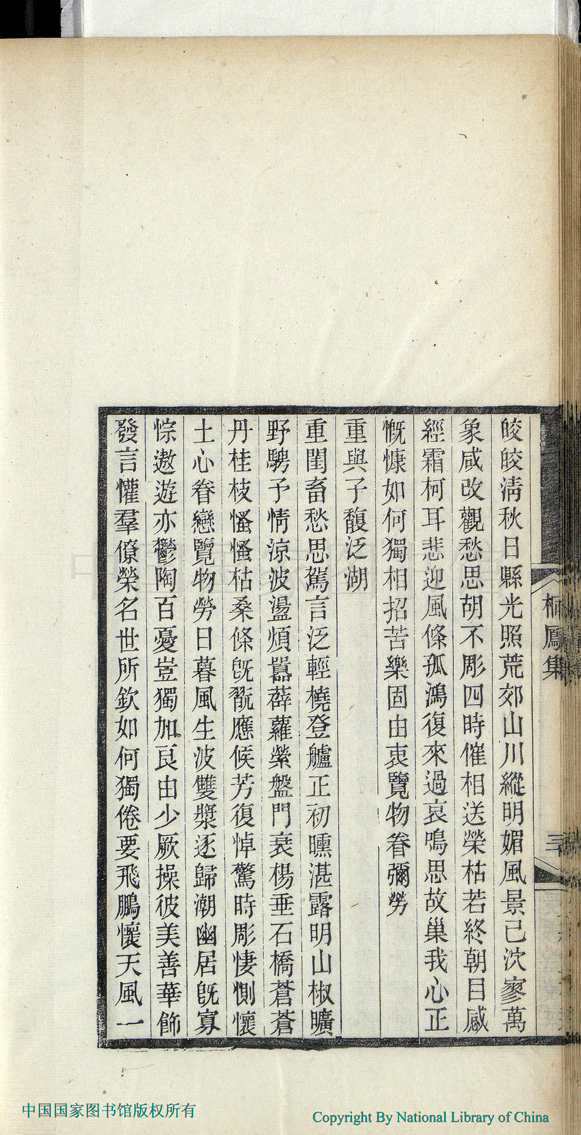 皎皎清秋日縣光照荒郊山川縱明媚風景已沈寥萬
象咸改觀愁思胡不彫四時催相送榮枯若終朝目感
經霜柯耳悲迎風條孤鴻復來過哀鳴思故巢我心正
慨慷如何獨相招苦樂固由衷覽物眷彌勞
重與子馥泛湖
重闈畜愁思駕言泛輕橈登艫正初曛湛露明山椒曠
野騁予情涼波盪煩囂薜蘿縈盤門衰楊垂石橋蒼蒼
丹桂枝慅慅枯桑條旣翫應候芳復悼驚時彫悽惻懷
土心眷戀覽物勞日暮風生波雙槳逐歸潮幽居旣寡
悰遨遊亦鬱陶百憂豈獨加良由少厥操彼美善華飾
發言懽羣僚榮名世所欽如何獨倦要飛鵬懷天風一
桐鳳集
三
中国国家图书馆版权所有
Copyright By National Library of China